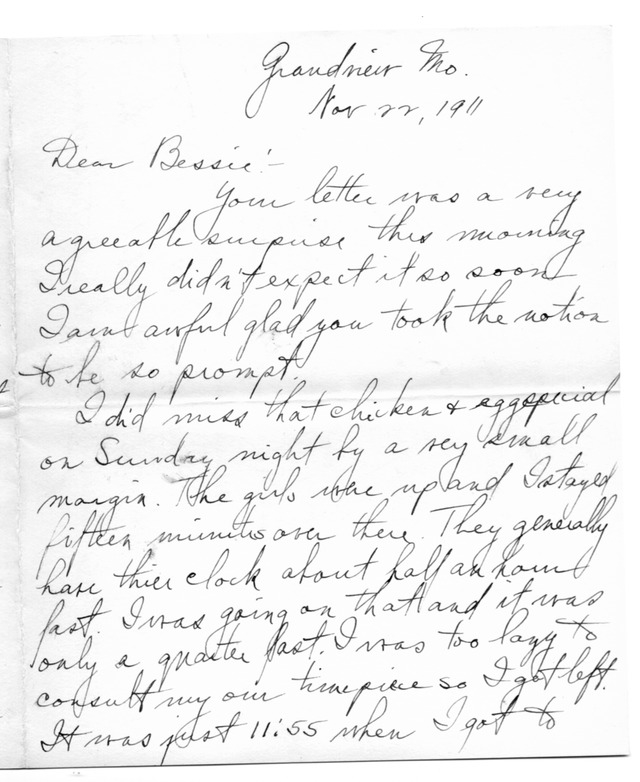 Grandview Mo.
Nov 22, 1911
Dear Bessie:-
Your letter was a very
agreeable surprise this morning
I really didn't expect it so soon
I am awful glad you took the notion
to be so prompt.
I did miss that chicken & egg special
on Sunday night by a very small
margin. The girls were up and I stayed
fifteen minutes over there. They generally
have thier clock about half an hour
fast. I was going on that and it was
only a quarter fast. I was too lazy to
consult my own timepiece so I got left.
It was just 11:55 when I got to